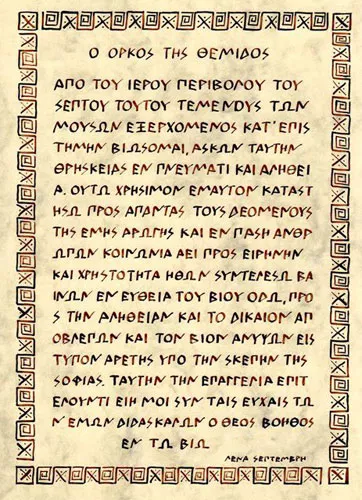 Ο ΟΡΚΟΣ ΤΗΣ ΘΕΜΙΔΟΣ
ΑΠΟ ΤΟΥ ΙΕΡΟΥ ΠΕΡΙΒΟΛΟΥ ΤΟΥ
ΣΕΠΤΟΥ ΤΟΥΤΟΥ ΤΕΜΕΝΟΥΣ ΤΩΝ
ΜΟΥΣΩΝ ΕΞΕΡΧΟΜΕΝΟΣ ΚΑΤ' ΕΠΙΣ
ΤΗΜΗΝ ΒΙΩΣΟΜΑΙ, ΑΣΚΩΝ ΤΑΥΤΗΝ
ΘΡΗΣΚΕΙΑΣ ΕΝ ΠΝΕΥΜΑΤΙ ΚΑΙ ΑΛΗΘΕΙ
Α. ΟΥΤΩ ΧΡΗΣΙΜΟΝ ΕΜΑΥΤΟΝ ΚΑΤΑΣΤ
ΗΣΩ ΠΡΟΣ ΑΠΑΝΤΑΣ ΤΟΥΣ ΔΕΟΜΕΝΟΥΣ
ΤΗΣ ΕΜΗΣ ΑΡΩΓΗΣ ΚΑΙ ΕΝ ΠΑΣΗ ΑΝΘΡ
ΩΠΩΝ ΚΟΙΝΩΝΙΑ ΑΕΙ ΠΡΟΣ ΕΙΡΗΝΗΝ
ΚΑΙ ΧΡΗΣΤΟΤΗΤΑ ΗΘΩΝ ΣΥΝΤΕΛΕΣΩ ΒΑ
ΙΝΩΝ ΕΝ ΕΥΘΕΙΑ ΤΟΥ ΒΙΟΥ ΟΔΩ, ΠΡΟ
Σ ΤΗΝ ΑΛΗΘΕΙΑΝ ΚΑΙ ΤΟ ΔΙΚΑΙΟΝ ΑΠ
ΟΒΛΕΠΩΝ ΚΑΙ ΤΟΝ ΒΙΟΝ ΑΝΥΨΩΝ ΕΙΣ
ΤΥΠΟΝ ΑΡΕΤΗΣ ΥΠΟ ΤΗΝ ΣΚΕΠΗΝ ΤΗΣ
ΣΟΦΙΑΣ. ΤΑΥΤΗΝ ΤΗΝ ΕΠΑΓΓΕΛΙΑ ΕΠΙΤ
ΕΛΟΥΝΤΙ ΕΙΗ ΜΟΙ ΣΥΝ ΤΑΙΣ ΕΥΧΑΙΣ ΤΩ
Ν' ΕΜΩΝ ΔΙΔΑΣΚΑΛΩΝ Ο ΘΕΟΣ ΒΟΗΘΟΣ
ΕΝ ΤΩ ΒΙΩ
ΛΕΝΑ ΣΕΠΤΕΜΒΡΗ